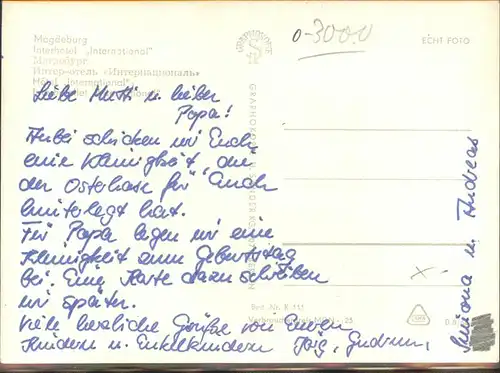 Magdeburg
Interhotel „International"
Магдебург
Интер-отель «Интернациональ»
Hôtel „International"
0-3000
ECHT FOTO
Liebe Mutti u. lieber
Papa!
Anbei schicken wir Euch
eine Kleinigkeit, die
der Osterhase für Euch
hinterlegt hat.
Für Papa legen wir eine
Kleinigkeit zum Geburtstag
bei. Eine Karte dazu schreiben
wir später.
Viele herzliche Grüße von Euren
Kindern u. Enkelkindern Jörg, Gudrun,
Simona u. Andreas
Best.-Nr. R 111
Verbraucherpreis MDN -,25